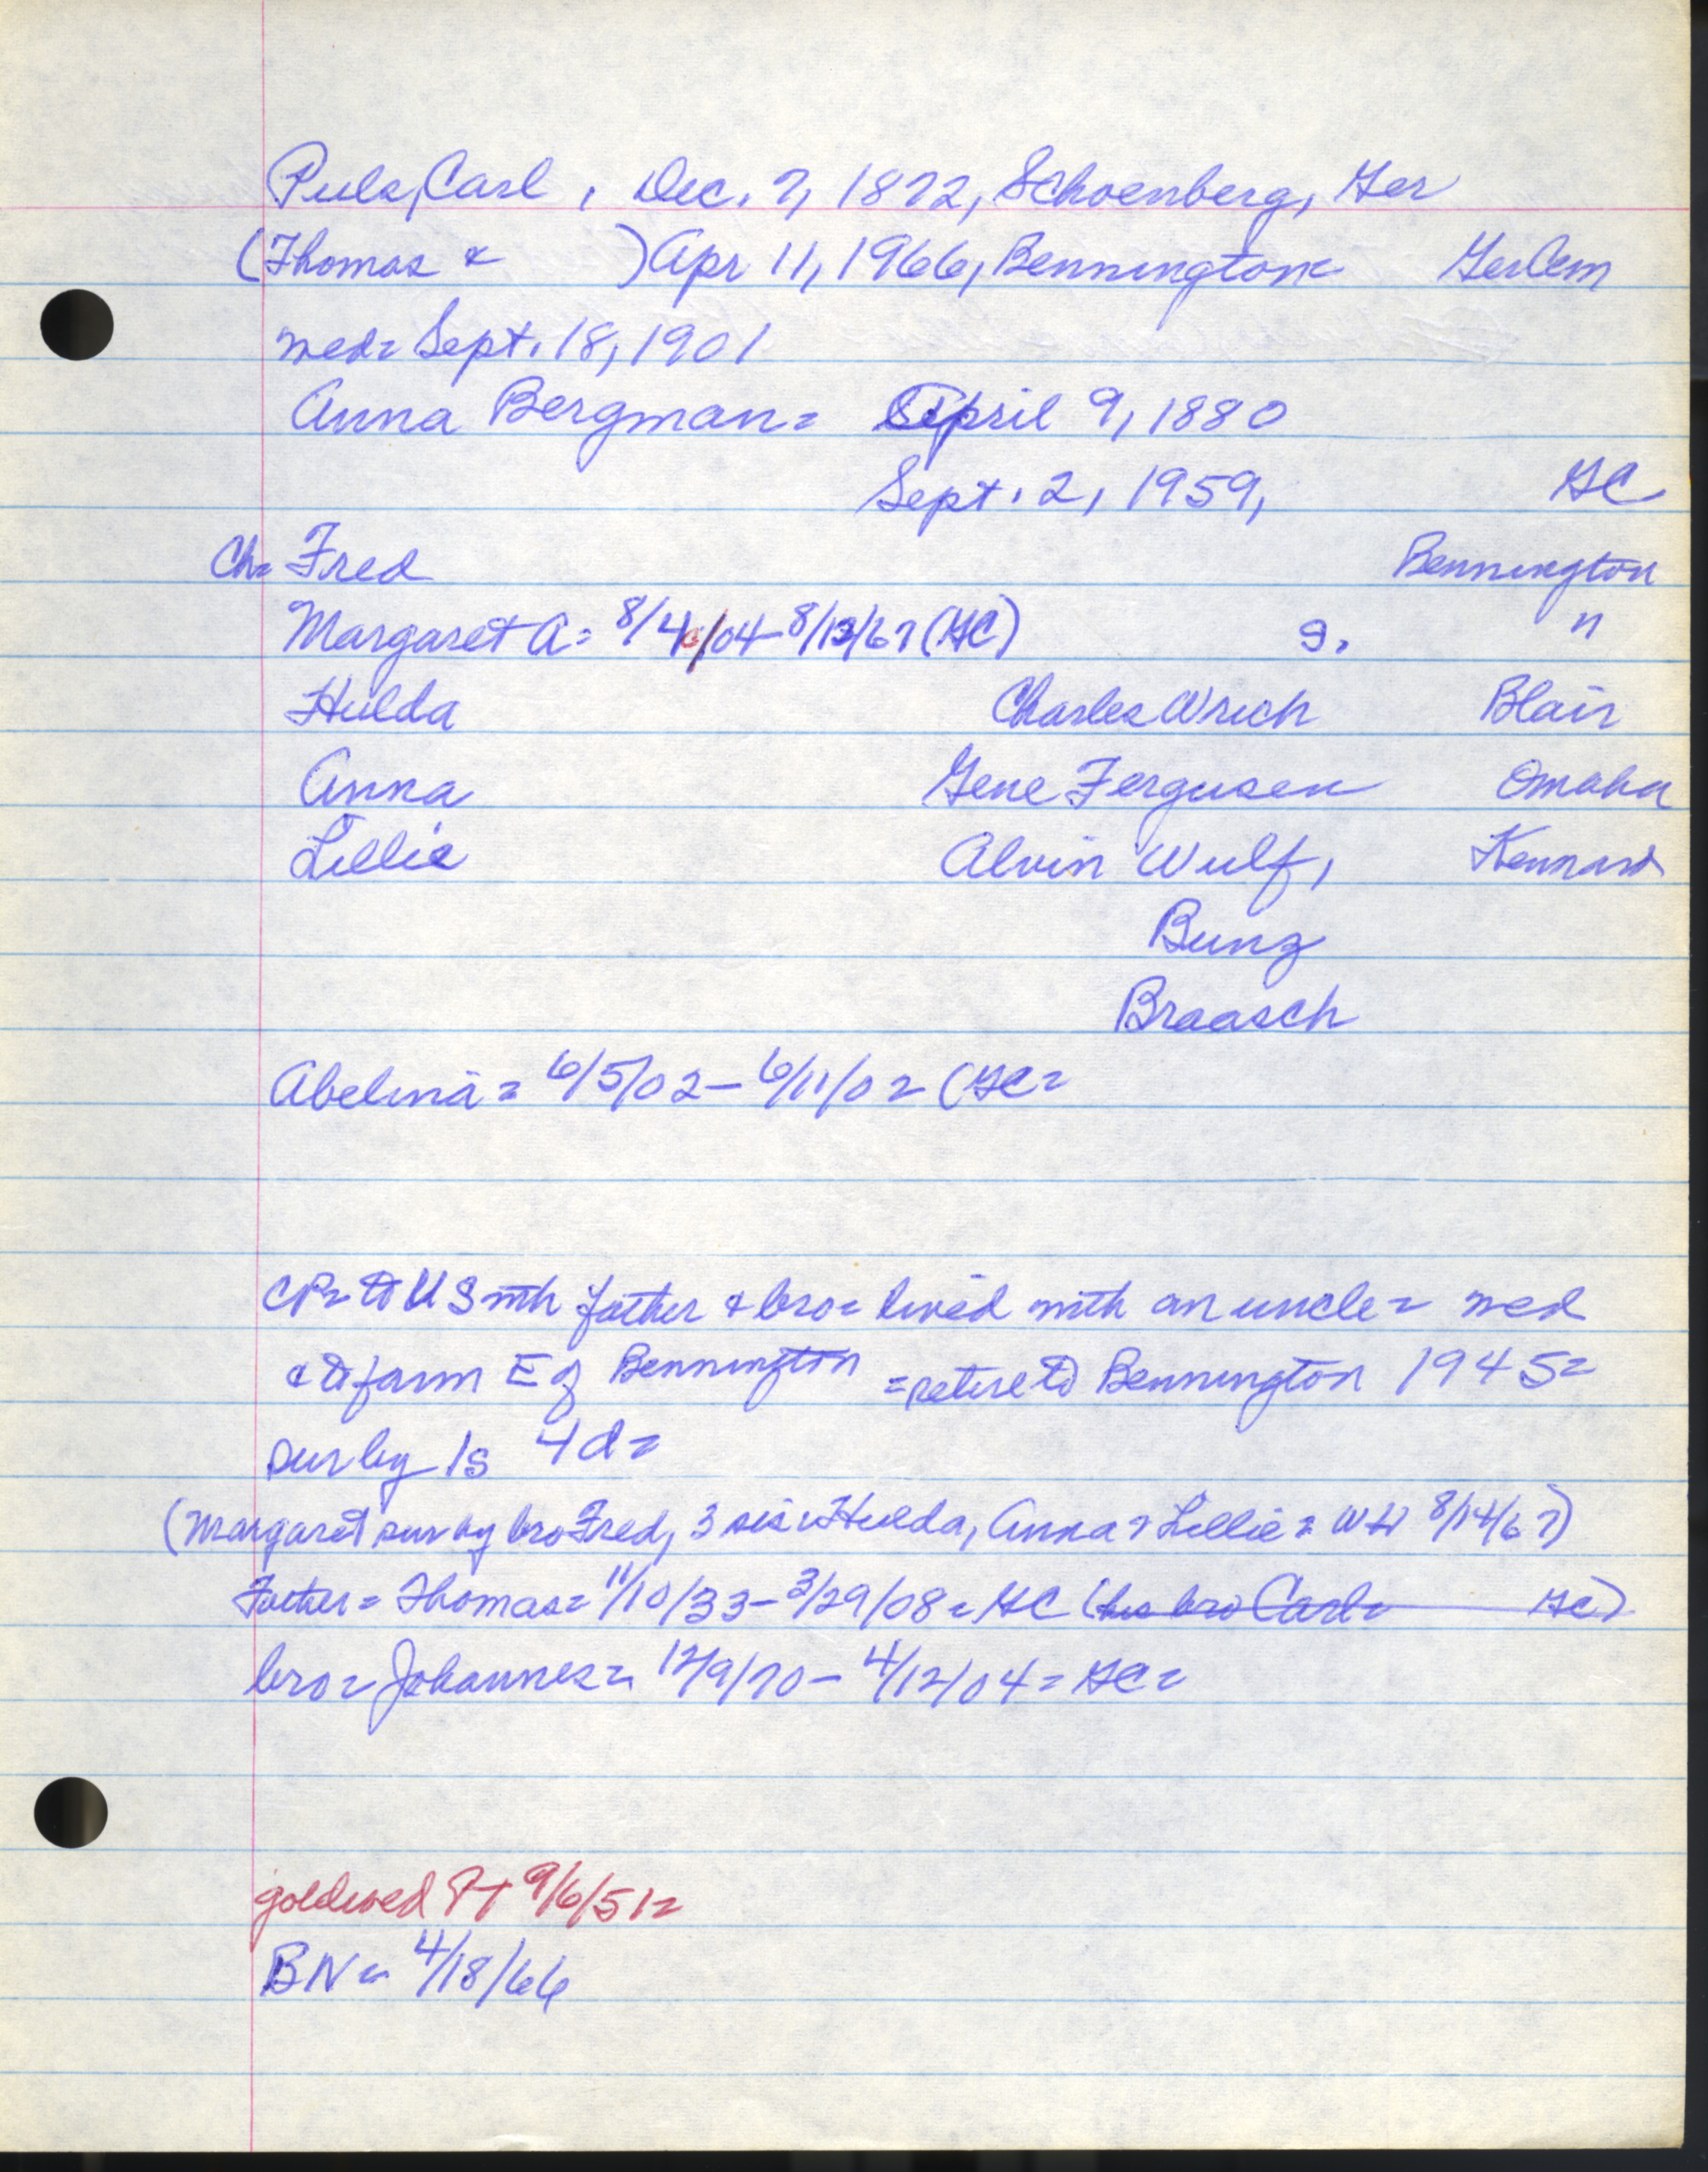 Puls, Carl, Dec. 7, 1872, Schoenberg, Ger
(Thomas & ) Apr 11, 1966, Bennington= GerCem
med= Sept. 18, 1901
Anna Bergman= April 9, 1880
Sept. 2, 1959, GC
Ch= Fred Bennington
Margaret A= 8/4/04-8/13/67 (GC) s. "
Hulda Charles Wrich Blair
Anna Gene Fergusen Omaha
Lillie Alvin Wulf, Kennard
Bunz
Braasch
Abelina= 6/5/02-6/11/02 (GC=
CP= to US with father & bro= lived with an uncle= med
& to farm E of Bennington =retire to Bennington 1945=
sur by 1s 4d=
(Margaret sur by bro Fred, 3 sis= Hulda, Anna & Lillie= WH 8/14/67)
Father= Thomas= 11/10/33-3/29/08= GC (his bro Carl= GC)
bro= Johannes= 12/9/70-4/12/04= GC=
goldwed PT 9/6/51=
BN= 4/18/66